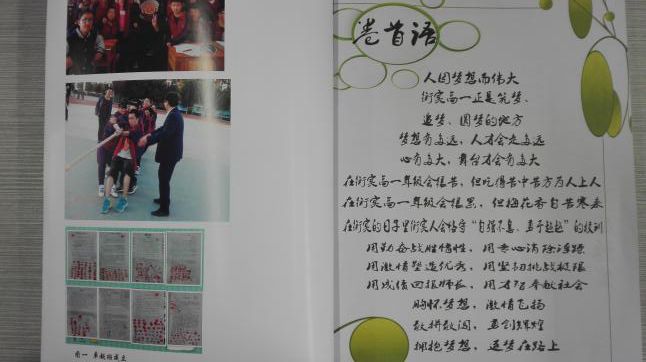 卷首语
人因梦想而伟大
衡实高一正是筑梦、
追梦、圆梦的地方
梦想有多远，人才会走多远
心有多大，舞台才会有多大
在衡实高一年级会很苦，但吃得苦中苦方为人上人
在衡实高一年级会很累，但梅花香自苦寒来
在衡实的日子里衡实人会恪守“自强不息、勇于超越”的校训
用勤奋战胜惰性，用专心消除浮躁
用激情塑造优秀，用坚韧挑战极限
用成绩回报师长，用才智奉献社会
胸怀梦想，激情飞扬
敢拼敢闯，再创辉煌
拥抱梦想，逐梦在路上